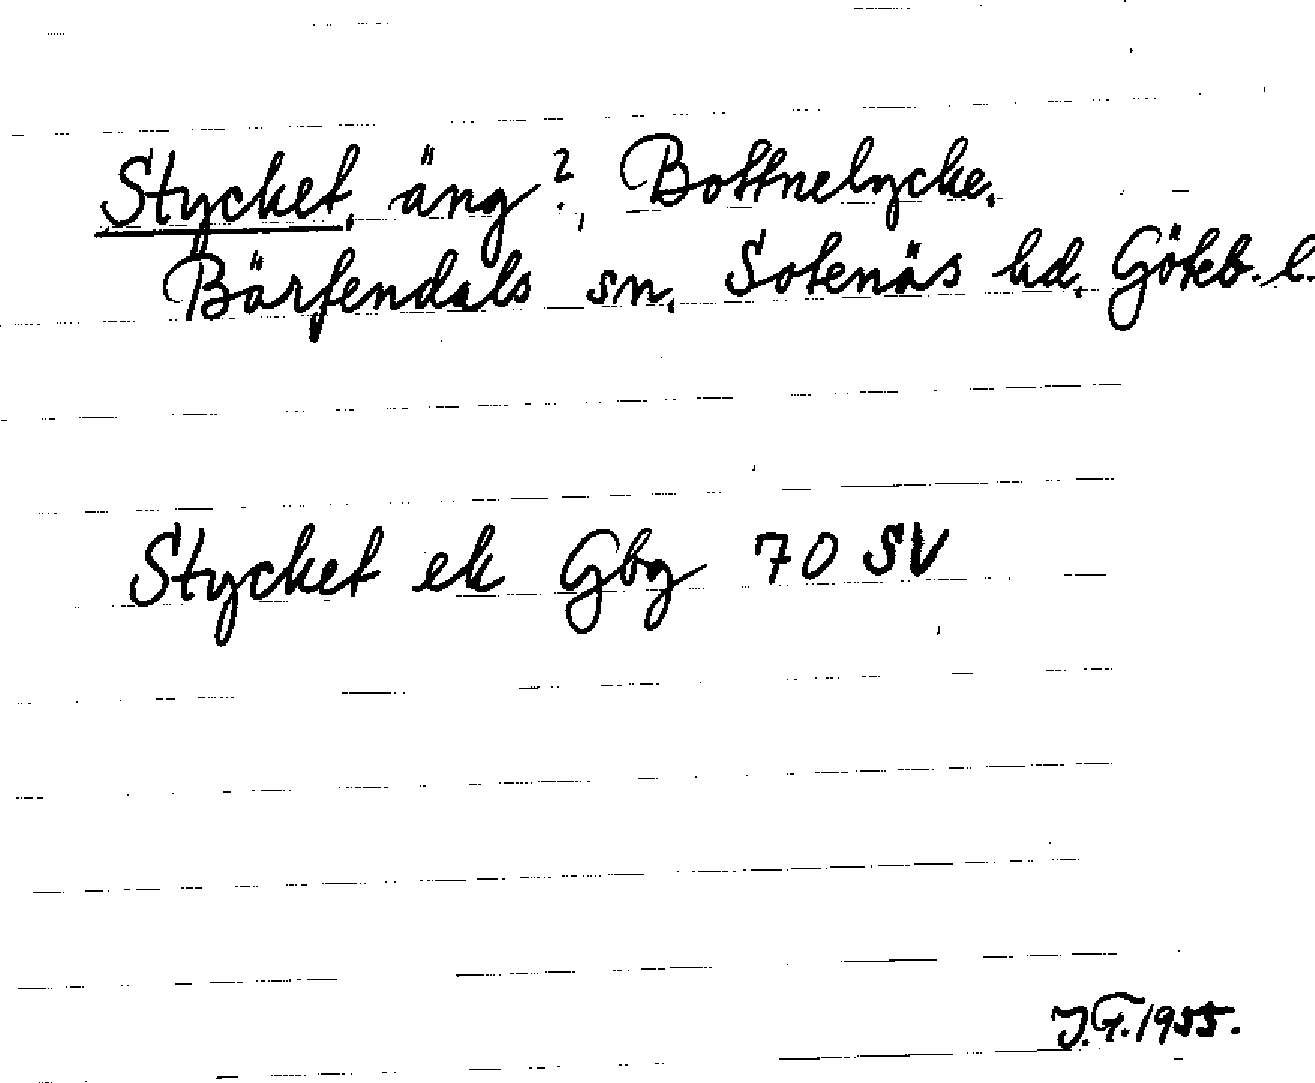 Stycket, äng?, Bottnelycke.
Bärfendals sn. Sotenäs hd. Göteb. l.
Stycket ek Gbg 70 SV
J.F. 1955.